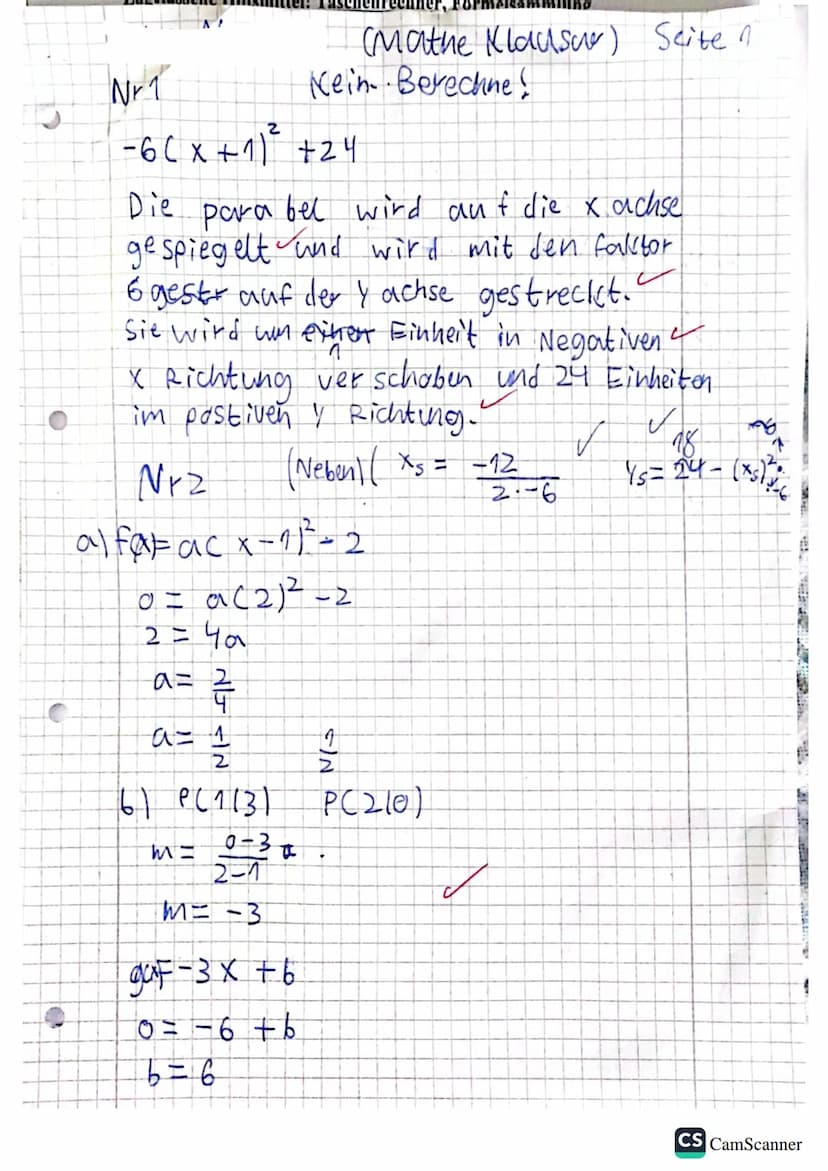 (Mathe Klausur) Seite 1
Nr 1 Kein Berechne!
-6(x+1)² +24
Die parabel wird auf die x achse
gespiegelt und wird mit den faktor
6 gestr auf der y achse gestreckt.
Sie wird um 1 Einheit in Negativen
x Richtung verschoben und 24 Einheiten
im postiven y Richtung.
Nr 2 (Neben)( xs = -12 / 2·-6 ys = 24 - (xs)²·-6
18
a) f(x)= a(x-1)²-2
0 = a(2)² -2
2 = 4a
a= 2/4
a= 1/2 1/2
b) P(1|3) P(2|0)
m= 0-3 / 2-1
m= -3
-3x +b
0= -6 +b
b= 6
CS CamScanner